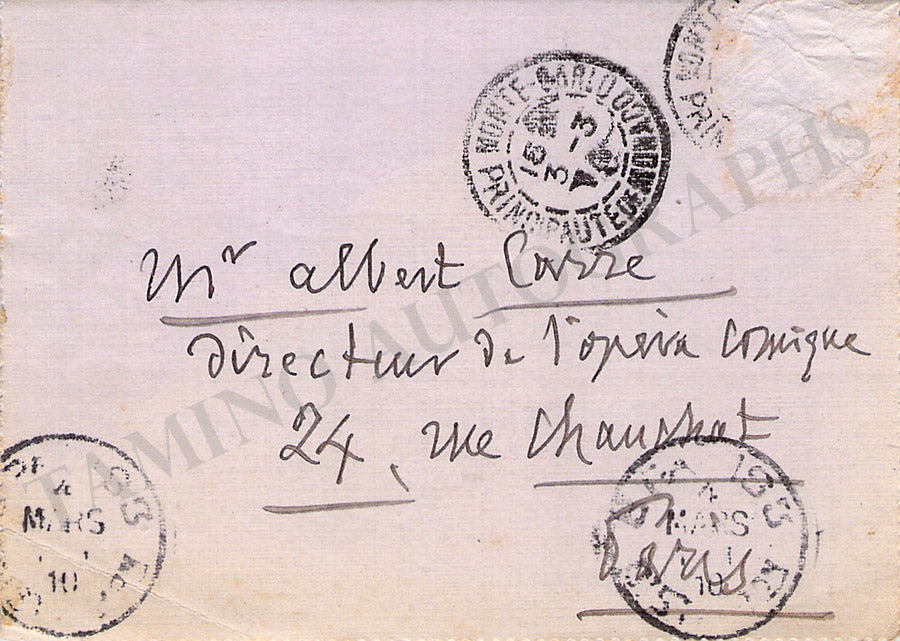 MONTE-CARLO
PRINCIPAUTÉ DE MONACO
15
3 - 3
MONTE
PRIN
Mr Albert Carré
Directeur de l'opéra Comique
24, rue Chauchat
Paris
4
MARS
10
4
MARS
10
TAMINO AUTOGRAPHS